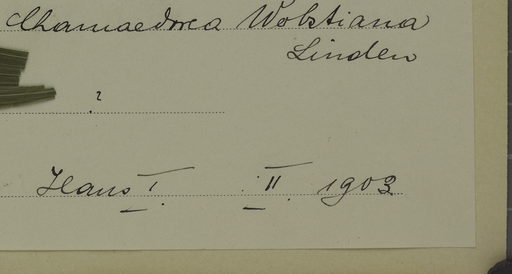 Chamaedorea Wobstiana
Linden
?
Haus I. II. 1903